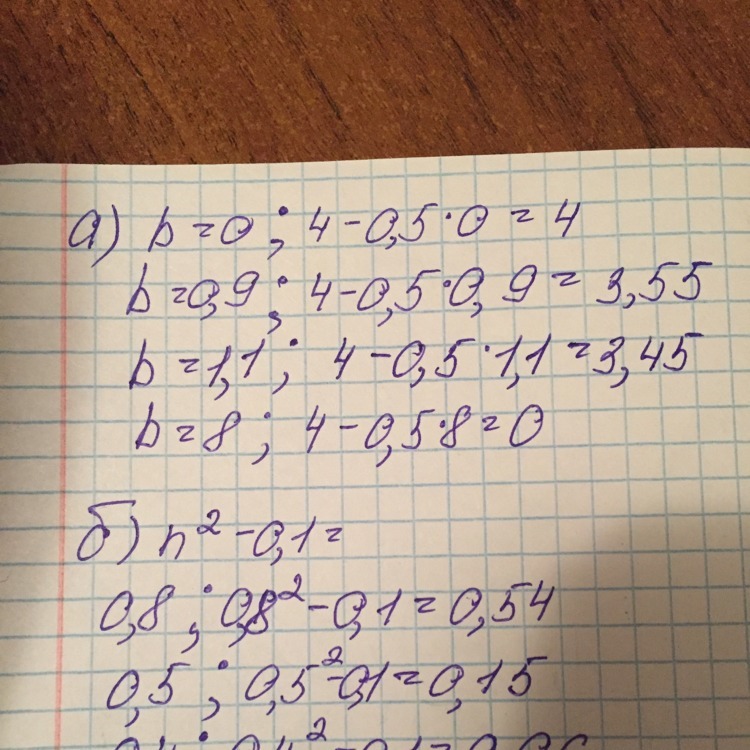 а) b=0; 4-0,5·0=4
b=0,9; 4-0,5·0,9=3,55
b=1,1; 4-0,5·1,1=3,45
b=8; 4-0,5·8=0
б) n²-0,1=
0,8; 0,8²-0,1=0,54
0,5; 0,5²-0,1=0,15